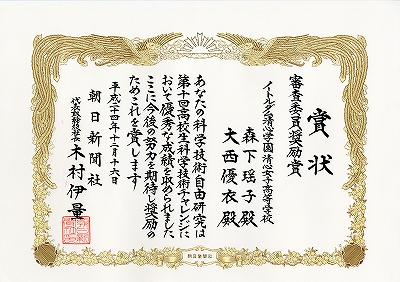 賞状
審査委員奨励賞
ノートルダム清心学園 清心女子高等学校
森下瑶子殿
大西優衣殿
あなたの科学技術自由研究は
第十回高校生科学技術チャレンジに
おいて優秀な成績を収められました
ここに今後の努力を期待し奨励の
ためこれを賞します
平成二十四年十二月十六日
朝日新聞社
代表取締役社長 木村伊量
朝日新聞社